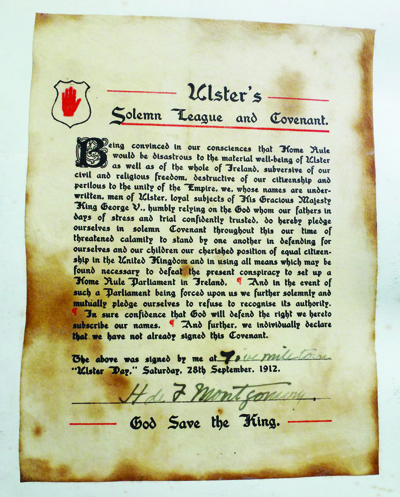 Ulster's
Solemn League and Covenant.
Being convinced in our consciences that Home Rule
would be disastrous to the material well-being of Ulster
as well as of the whole of Ireland, subversive of our
civil and religious freedom, destructive of our citizenship and
perilous to the unity of the Empire, we, whose names are under-
written, men of Ulster, loyal subjects of His Gracious Majesty
King George V., humbly relying on the God whom our fathers in
days of stress and trial confidently trusted, do hereby pledge
ourselves in solemn Covenant throughout this our time of
threatened calamity to stand by one another in defending for
ourselves and our children our cherished position of equal citizen-
ship in the United Kingdom and in using all means which may be
found necessary to defeat the present conspiracy to set up a
Home Rule Parliament in Ireland. ¶ And in the event of
such a Parliament being forced upon us we further solemnly and
mutually pledge ourselves to refuse to recognise its authority.
¶ In sure confidence that God will defend the right we hereto
subscribe our names. ¶ And further, we individually declare
that we have not already signed this Covenant.
The above was signed by me at Fivemiletown
"Ulster Day," Saturday, 28th September, 1912.
H de F Montgomery.
God Save the King.